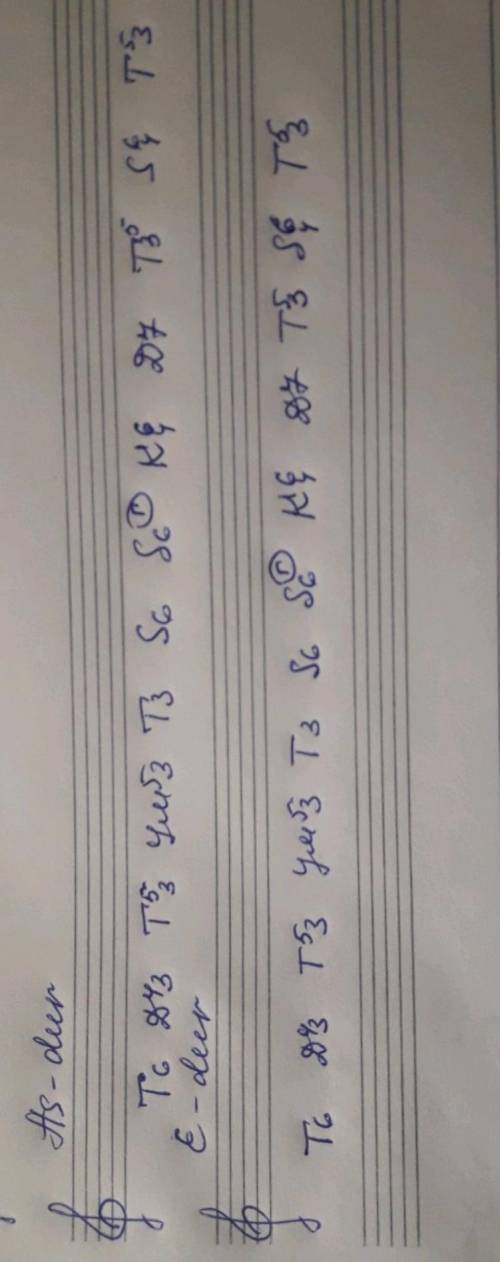 As-dur
T6 D4/3 T5/3 Ум5/3 T3 S6 S6 Г K6/4 D7 T5/3 S6/4 T5/3
E-dur
T6 D4/3 T5/3 Ум5/3 T3 S6 S6 Г K6/4 D7 T5/3 S6/4 T5/3